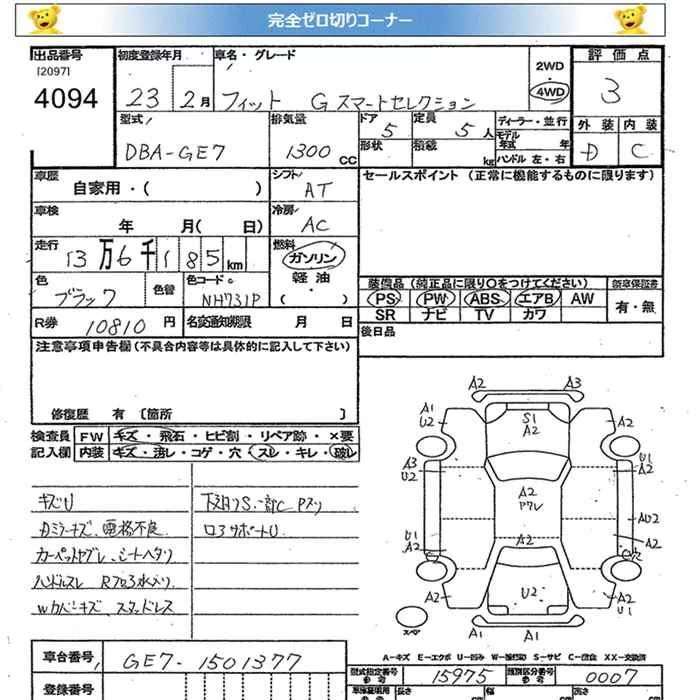 完全ゼロ切りコーナー
出品番号 [2097] 4094
初度登録年月 23 2月
車名・グレード フィット G スマートセレクション
2WD ・ 4WD
評価点 3
外装 D 内装 C
型式 DBA-GE7
排気量 1300 CC
ドア 5 形状
定員 5人 積載 kg
ディーラー・並行
モデル年式 年
ハンドル 左・右
車歴 自家用・( )
シフト AT
セールスポイント (正常に機能するものに限ります)
車検 年 月( 日)
冷房 AC
走行 13万6千185km
燃料 ガソリン 軽油 ・( )
色 ブラック 色替 色コードNo. NH731P
装備品(純正品に限り○をつけてください) 保証書
PS PW ABS エアB AW 有・無
SR ナビ TV カワ
R券 10810 円 名変通知期限 月 日
後日品
注意事項申告欄(不具合内容等は具体的に記入して下さい)
修復歴 有 [箇所 ]
検査員 FW キズ・飛石・ヒビ割・リペア跡・×要
記入欄 内装 キズ・汚レ・コゲ・穴・スレ・キレ・破レ
キズU
Dミラーキズ、電格不良
カーペットヤブレ、シートヘタリ
ハンドルスレ
Wカバーキズ スタッドレス
下廻りS
ロアサポートU
A2 A3
A1 U2 S1 A2 A2
A3 U2 U1 A2
A2 アワレ AU2
U2 A2 A2 穴
A2 U2 A2 U1
A1 A1
スペア
A-キズ E-エクボ U-凹み W-補修跡 S-サビ C-腐食 XX-交換済
車台番号 GE7-1501377
型式指定番号 参考 15975 類別区分番号 参考 0007
登録番号
長さ 幅 高さ